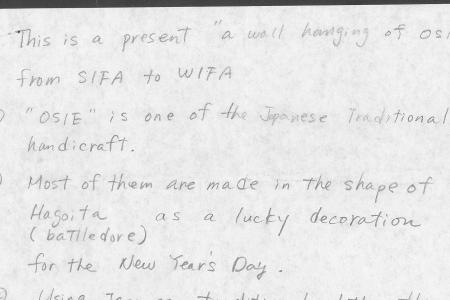 This is a present "a wall hanging of
from SIFA to WIFA
"OSIE" is one of the Japanese Traditional
handicraft.
Most of them are made in the shape of
Hagoita as a lucky decoration
(battledore)
for the New Year's Day.
Using